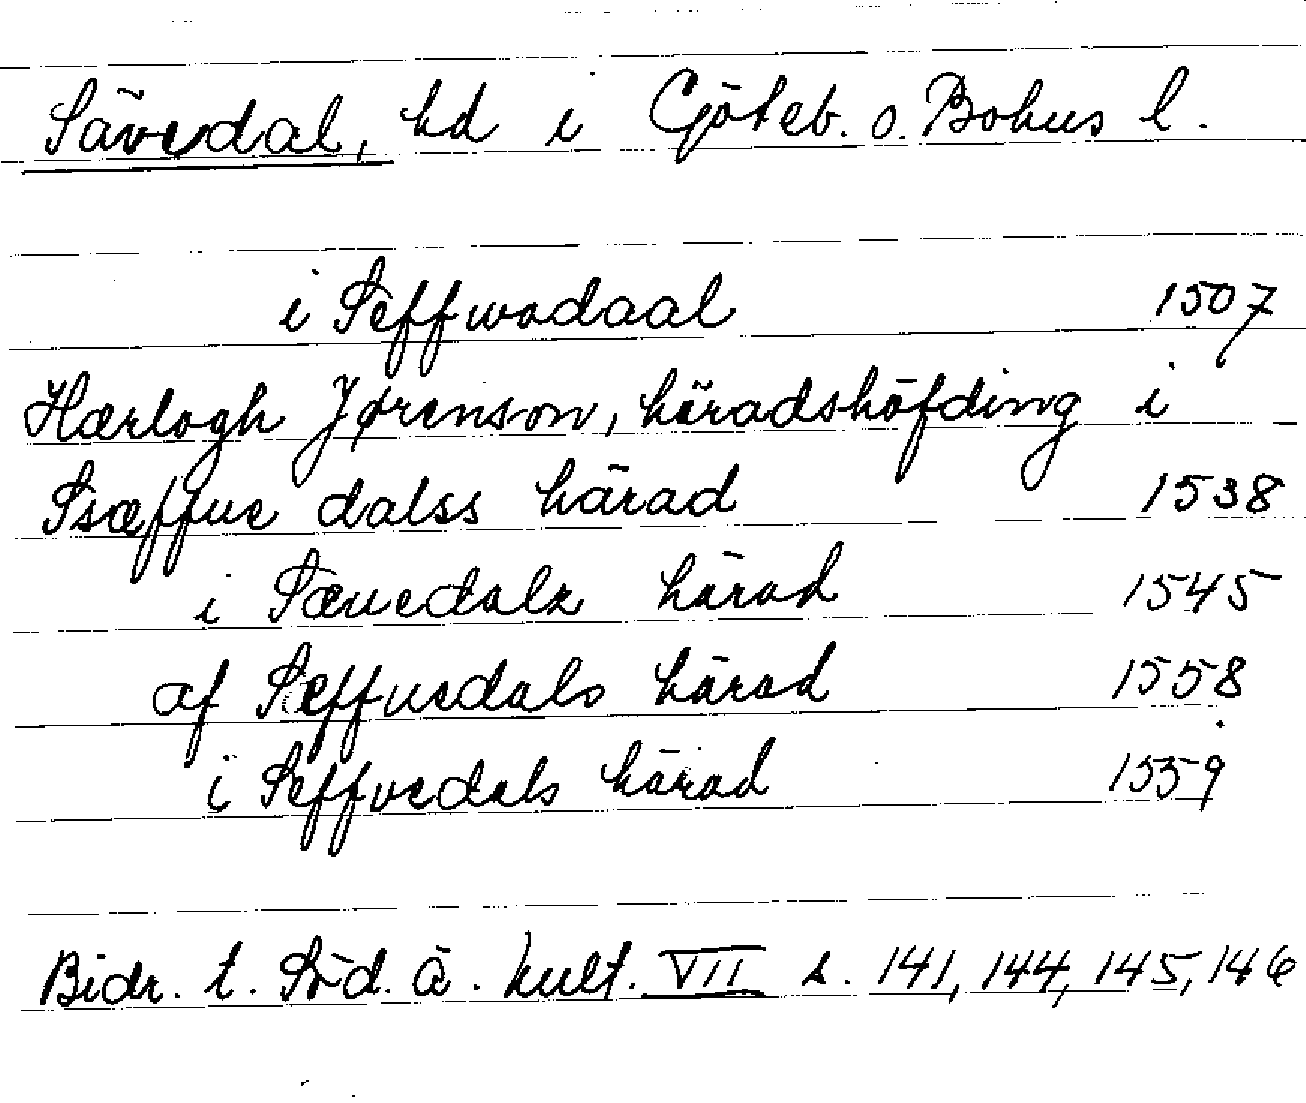 Sävedal, hd i Göteb. o. Bohus l.
i Seffwadaal 1507
Hærlogh Jørenson, häradshöfding i
Ssæffue dalss härad 1538
i Sæuedalz härad 1545
af Seffuedals härad 1558
i Seffvedals härad 1559
Bidr. t. Söd. ä. kult. VII s. 141, 144, 145, 146